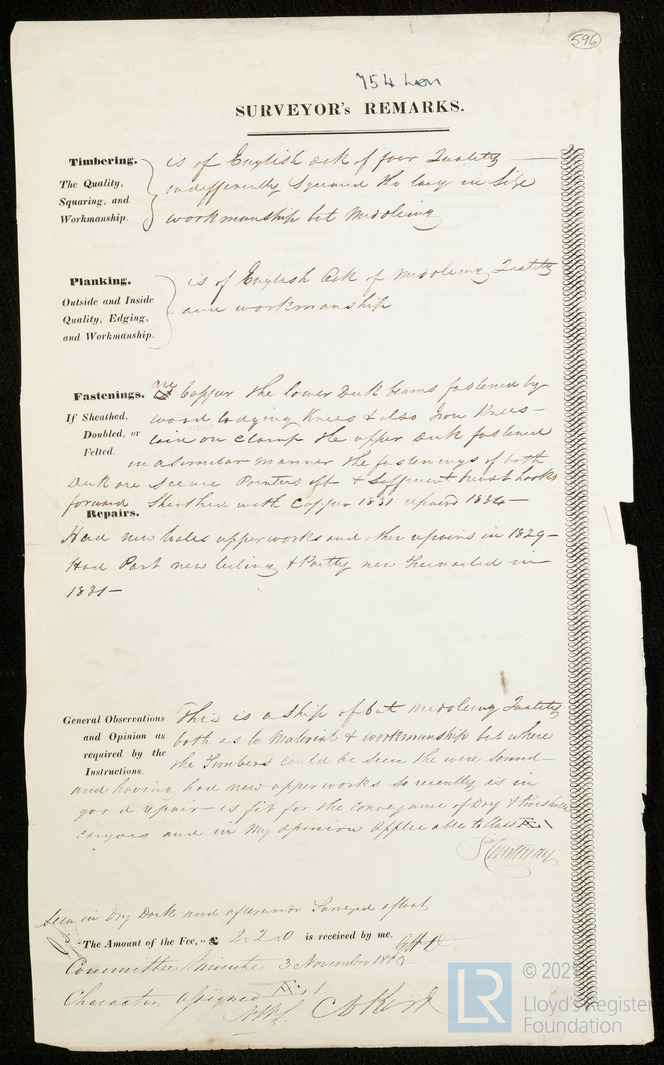 596
754 Lon
SURVEYOR's REMARKS.
Timbering.
The Quality,
Squaring, and
Workmanship.
is of English oak of fair Quality —
indifferently Squared tho larg in Size
workmanship but Middling
Planking.
Outside and Inside
Quality, Edging,
and Workmanship.
is of English Oak of Middling Quality
and workmanship
Fastenings.
If Sheathed,
Doubled, or
Felted.
are Copper the lower Deck beams fastened by
wood lodging Knees & also Iron Knees —
on Clamp the upper Deck fastened
in a similar manner the fastenings of both
Deck are Secure Pointers aft & Sufficient breast hooks
forward Sheathed with Copper 1831 repaird 1834 —
Repairs.
Had new wales upperworks and other repairs in 1829 —
Had Part new Ceiling & Partly new Treenailed in
1831 —
General Observations
and Opinion as
required by the
Instructions.
This is a Ship of but Middling Quality
both as to Material & workmanship but where
the Timbers could be seen the were Sound —
and having had new upperworks so recently is in
good repair — is fit for the conveyance of Dry & Perishable
Cargoes and in My Opinion Applicable to Class
Seen in Dry Dock and afterwards Surveyed afloat
The Amount of the Fee, £ 2.2.0 is received by me.
Committee Minute 3 November
Character assigned
© 202
LR
Lloyd's Register
Foundation